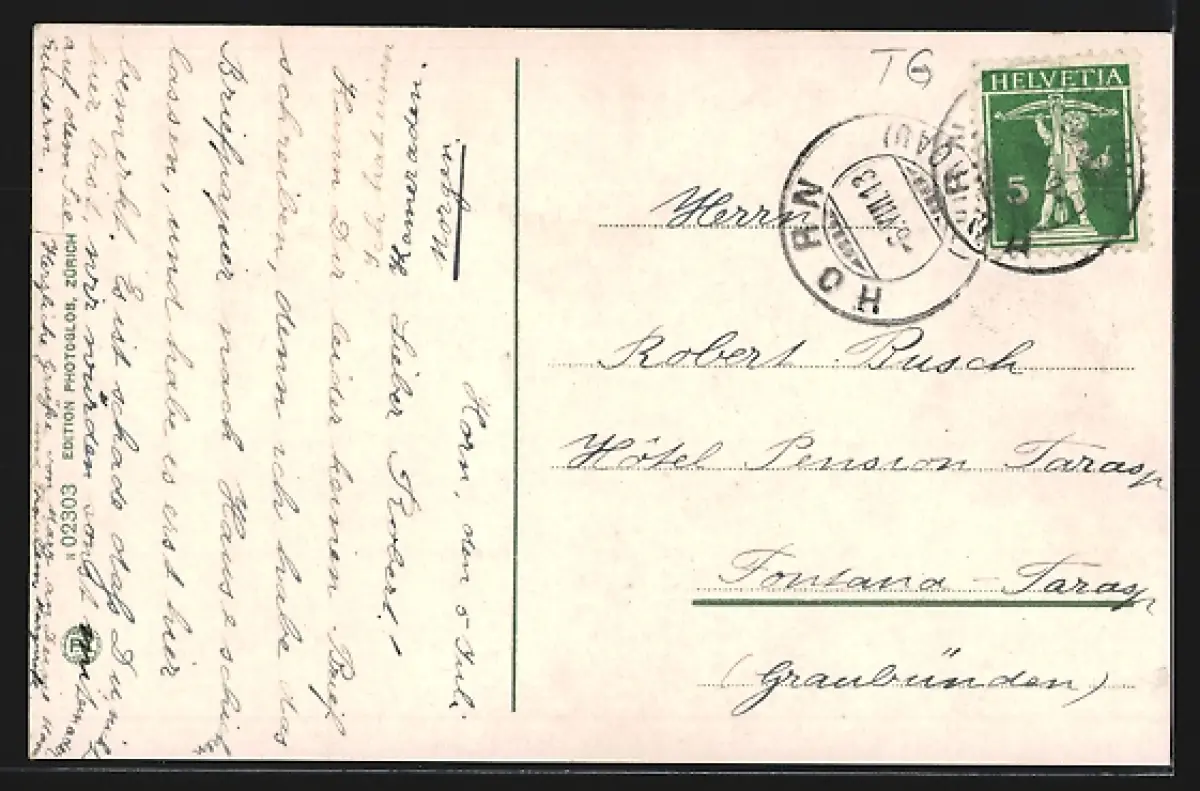 TG
HELVETIA
5
HORN
(THURGAU)
5.VIII.13
Herrn
Robert Busch
Hôtel Pension Tarasp
Fontana-Tarasp
(Graubünden)
Horn, den 5 Juli
Lieber Robert!
Kann Dir leider keinen Brief
schreiben, denn ich habe das
Briefpapier nach Hause schick
lassen, und habe es erst hier
bemerkt. Es ist schade daß Du nicht
hier bist, wir würden sonst
auf dem See
rudern.
Herzliche Grüße von
N 02303 EDITION PHOTOGLOB, ZÜRICH